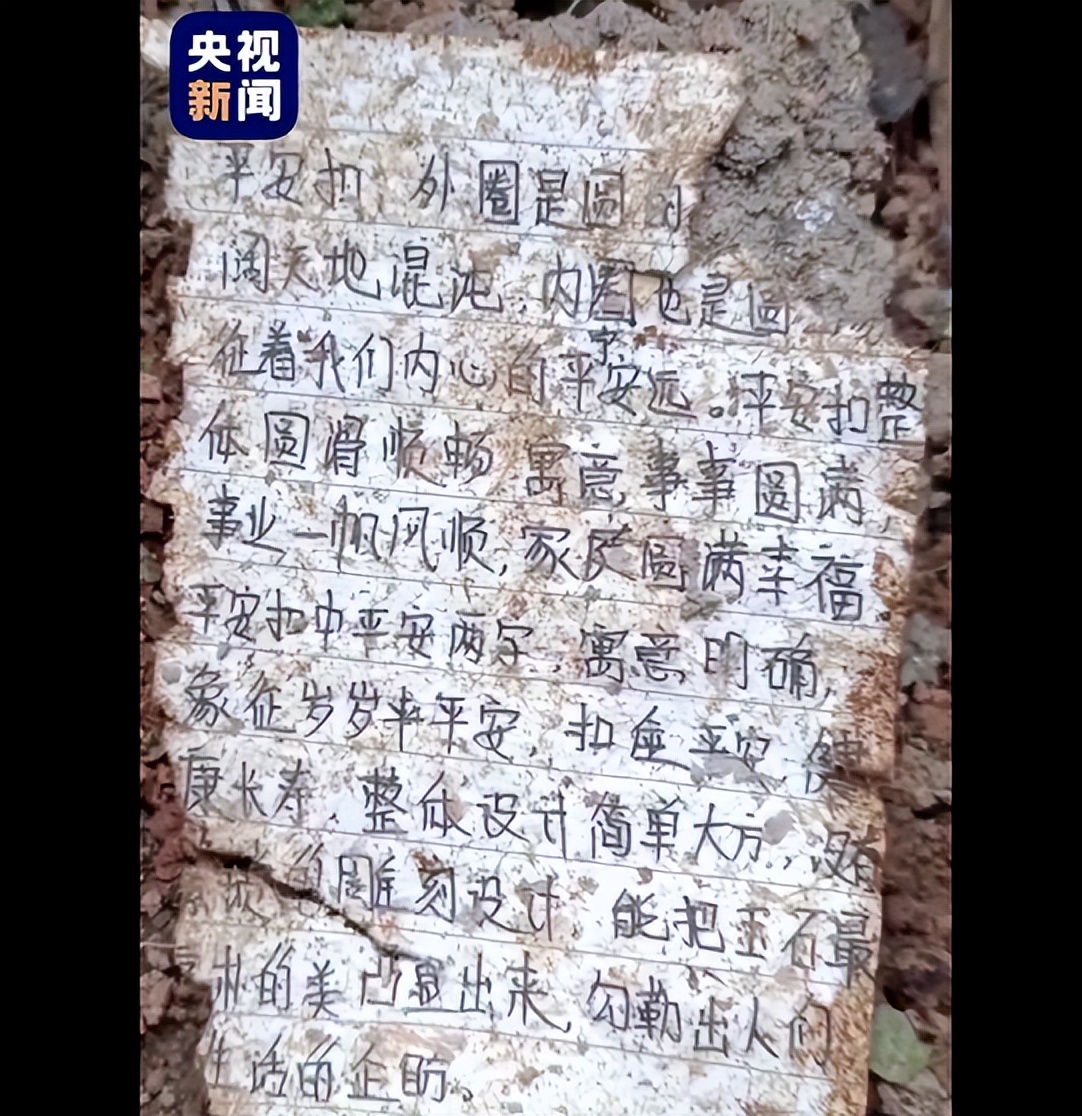 央视
新闻
平安扣 外圈是圆
阔天地混沌,内圈也是圆
征着我们内心的平安宁远。平安扣整
体圆滑顺畅 寓意事事圆满,
事业一帆风顺,家庭圆满幸福。
平安扣中平安两字,寓意明确,
象征岁岁平安,扣金平安,健
康长寿,整体设计简单大方,没有
的雕刻设计 能把玉石最
朴的美凸显出来,勾勒出人们
生活的企盼。